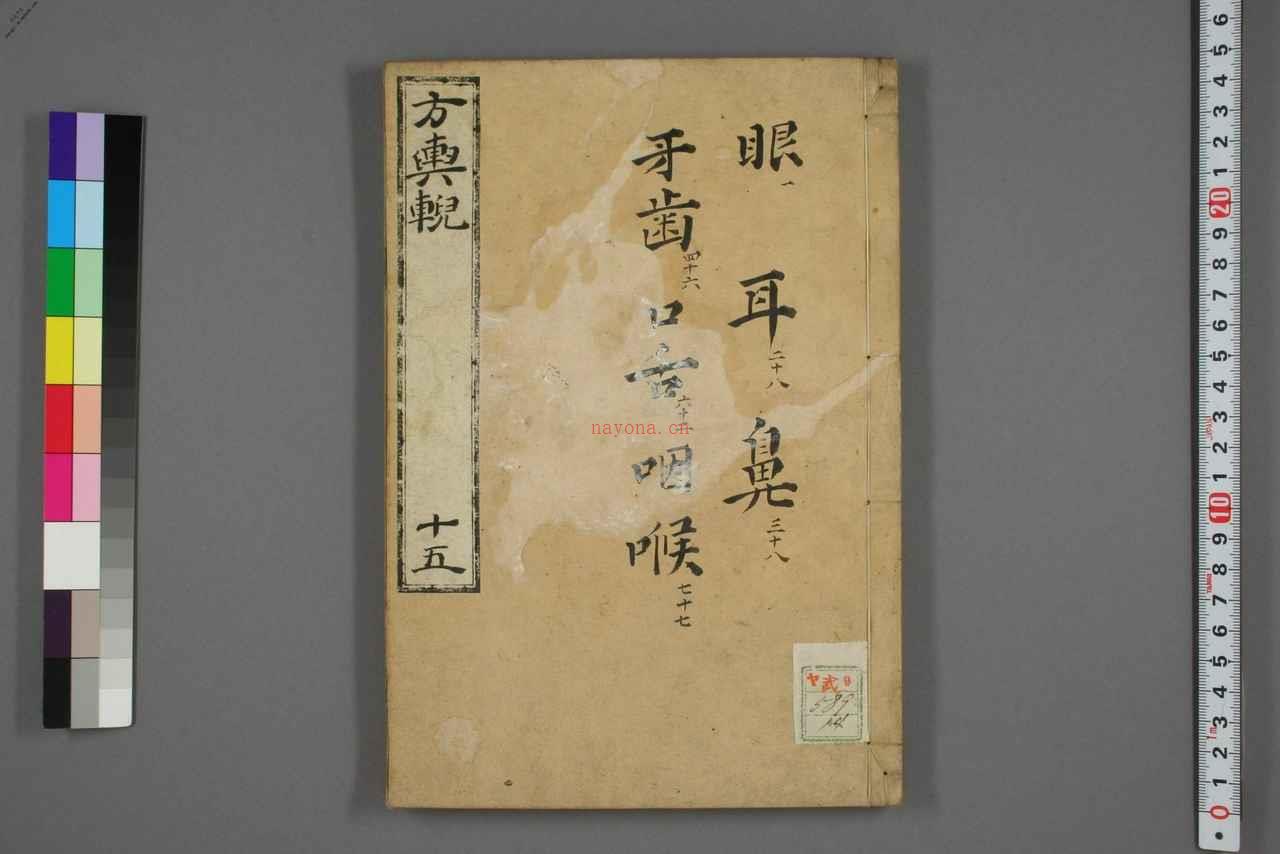 方輿輗
十五
眼 一
耳 二十八
鼻 三十八
牙歯 四十六
口舌
咽喉 七十七
nayona.cn
ヤ 武 9